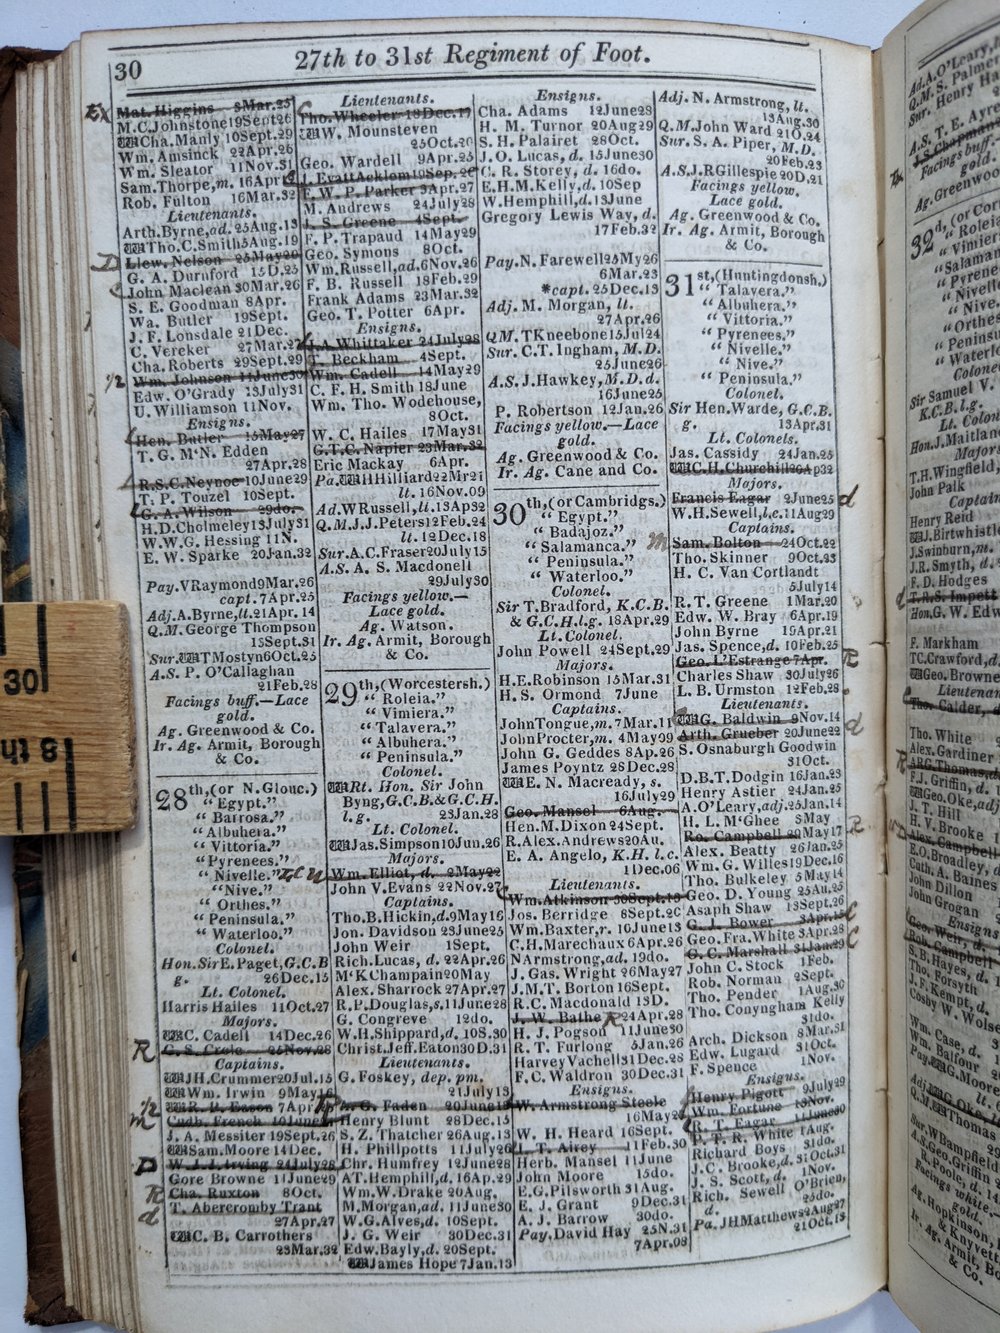 30
27th to 31st Regiment of Foot.
Ex
Mat. Higgins 8Mar.25
M.C.Johnstone 19Sept26
Cha. Manly 10Sept.29
Wm. Amsinck 22Apr.26
Wm. Sleator 11Nov.31
Sam. Thorpe, m. 16Apr
Rob. Fulton 16Mar.32
Lieutenants.
Arth.Byrne,ad. 25Aug.13
Tho.C.Smith 5Aug.19
D
Llew. Nelson 25May20
G. A. Durnford 15D.25
John Maclean 30Mar.26
S. E. Goodman 8Apr.
Wa. Butler 19Sept.
J. F. Lonsdale 21Dec.
C. Vereker 27Mar.27
Cha. Roberts 29Sept.29
1/2
Wm. Johnson 11June30
Edw. O'Grady 13July31
U. Williamson 11Nov.
Ensigns.
Hen. Butler 15May27
T. G. M'N. Edden
27Apr.28
R.S.C.Neynoe 10June29
T. P. Touzel 10Sept.
G. A. Wilson 29do.
H.D.Cholmeley 13July31
W.W.G. Hessing 11N.
E. W. Sparke 20Jan.32
Pay. VRaymond 9Mar.26
capt. 7Apr.25
Adj. A.Byrne, lt. 21Apr.14
Q.M. George Thompson
15Sept.31
Sur. TMostyn 6Oct.25
A.S. P. O'Callaghan
21Feb.28
Facings buff.—Lace
gold.
Ag. Greenwood & Co.
Ir. Ag. Armit, Borough
& Co.
28th, (or N. Glouc.)
"Egypt."
"Barrosa."
"Albuhera."
"Vittoria."
"Pyrenees."
"Nivelle."
"Nive."
"Orthes."
"Peninsula."
"Waterloo."
Colonel.
Hon. Sir E. Paget, G.C.B
g. 26Dec.15
Lt. Colonel.
Harris Hailes 11Oct.27
Majors.
C. Cadell 14Dec.26
R
Captains.
JH.Crummer 20Jul.15
Wm. Irwin 9May16
1/2
R. P. Eason 7Apr
m
Cudb. French 10June
J. A. Messiter 19Sept.26
Sam. Moore 14Dec.
D
W. J. J. Irving 24July28
Gore Browne 11June29
R
Cha. Ruxton 8Oct.
d
T. Abercromby Trant
27Apr.27
C. B. Carrothers
23Mar.32
Lieutenants.
Tho. Wheeler 18Dec.17
W. Mounsteven
25Oct.20
Geo. Wardell 9Apr.25
J. Evatt Acklom 19Sep.26
F. W. P. Parker 3Apr.27
M. Andrews 24July28
J. S. Greene 4Sept.
F. P. Trapaud 14May29
Geo. Symons 8Oct.
Wm. Russell, ad. 6Nov.26
F. B. Russell 18Feb.29
Frank Adams 23Mar.32
Geo. T. Potter 6Apr.
Ensigns.
J.A. Whittaker 24July28
T. Beckham 4Sept.
Wm. Cadell 14May29
C. F. H. Smith 18June
Wm. Tho. Wodehouse,
8Oct.
W. C. Hailes 17May31
G.T.C. Napier 23Mar.32
Eric Mackay 6Apr.
Pa. HHilliard 22Mr21
lt. 16Nov.09
Ad. WRussell, lt. 13Ap32
Q.M. J.J.Peters 12Feb.24
lt. 12Dec.18
Sur. A.C.Fraser 20July15
A.S. A. S. Macdonell
29July30
Facings yellow.—
Lace gold.
Ag. Watson.
Ir. Ag. Armit, Borough
& Co.
29th, (Worcestersh.)
"Roleia."
"Vimiera."
"Talavera."
"Albuhera."
"Peninsula."
Colonel.
Rt. Hon. Sir John
Byng, G.C.B.& G.C.H.
l.g. 23Jan.28
Lt. Colonel.
Jas. Simpson 10Jun.26
Majors.
Wm. Elliot, d. 2May22
John V. Evans 22Nov.27
Captains.
Tho.B.Hickin,d. 9May16
Jon. Davidson 23June25
John Weir 1Sept.
Rich. Lucas, d. 22Apr.26
M'K Champain 20May
Alex. Sharrock 27Apr.27
R.P.Douglas, s. 11June28
G. Congreve 12do.
W.H.Shippard, d. 10S.30
Christ. Jeff. Eaton 30D.31
Lieutenants.
G. Foskey, dep. pm.
21July13
A. G. Faden 20June
Henry Blunt 28Dec.15
S. Z. Thatcher 26Aug.13
H. Phillpotts 11July26
Chr. Humfrey 12June28
AT.Hemphill,d. 16Ap.29
Wm.W.Drake 20Aug.
M.Morgan,ad. 11June30
W.G.Alves,d. 10Sept.
J. G. Weir 30Dec.31
Edw.Bayly,d. 20Sept.
James Hope 7Jan.13
Ensigns.
Cha. Adams 12June28
H. M. Turnor 20Aug29
S. H. Palairet 28Oct.
J.O. Lucas, d. 15June30
C. R. Storey, d. 16do.
E.H.M.Kelly,d. 10Sep
W.Hemphill,d. 13June
Gregory Lewis Way, d.
17Feb.32
Pay. N. Farewell 25My26
6Mar.23
*capt. 25Dec.13
Adj. M. Morgan, lt.
27Apr.26
QM. TKneebone 15Jul24
Sur. C.T. Ingham, M.D.
25June26
A.S. J.Hawkey, M.D. d.
16June25
P. Robertson 12Jan.26
Facings yellow.—Lace
gold.
Ag. Greenwood & Co.
Ir. Ag. Cane and Co.
30th, (or Cambridgs.)
"Egypt."
"Badajoz."
"Salamanca."
"Peninsula."
"Waterloo."
Colonel.
Sir T. Bradford, K.C.B.
& G.C.H. l.g. 18Apr.29
Lt. Colonel.
John Powell 24Sept.29
Majors.
H.E.Robinson 15Mar.31
H. S. Ormond 7June
Captains.
John Tongue, m. 7Mar.11
John Procter, m. 4May99
John G. Geddes 8Ap.26
James Poyntz 28Dec.28
E. N. Macready, s.
16July29
Geo. Mansel 6Aug.
Hen. M. Dixon 24Sept.
R.Alex.Andrews 20Au.
E. A. Angelo, K.H. l.c.
1Dec.06
Lieutenants.
Wm. Atkinson 30Sept.13
Jos. Berridge 8Sept.2
Wm.Baxter, r. 10June13
C.H.Marechaux 6Apr.26
NArmstrong,ad. 19do.
J. Gas. Wright 26May27
J.M.T. Borton 16Sept.
R.C. Macdonald 13D.
J. W. Bathe 24Apr.28
R
H. J. Pogson 11June30
R. T. Furlong 5Jan.26
Harvey Vachell 31Dec.28
F.C. Waldron 30Dec.31
Ensigns.
W. Armstrong Steele
16May2
W. H. Heard 16Sept.
L. T. Airey 11Feb.30
Herb. Mansel 11June
John Moore 15do.
E.G. Pilsworth 31Aug.
E. J. Grant 9Dec.31
A. J. Barrow 30do.
Pay. David Hay 25N.31
7Apr.08
Adj. N. Armstrong, lt.
13Aug.30
Q.M. John Ward 21O.24
Sur. S. A. Piper, M.D.
20Feb.23
A.S. J.RGillespie 20D.21
Facings yellow.
Lace gold.
Ag. Greenwood & Co.
Ir. Ag. Armit, Borough
& Co.
31st, (Huntingdonsh.)
"Talavera."
"Albuhera."
"Vittoria."
"Pyrenees."
"Nivelle."
"Nive."
"Peninsula."
Colonel.
Sir Hen. Warde, G.C.B.
g. 13Apr.31
Lt. Colonels.
Jas. Cassidy 24Jan.25
C.H.Churchill 26Ap32
Majors.
Francis Eagar 2June25
d
W.H.Sewell, l.c. 11Aug29
Captains.
m
Sam. Bolton 24Oct.22
Tho. Skinner 9Oct.23
H. C. Van Cortlandt
5July14
R. T. Greene 1Mar.20
Edw. W. Bray 6Apr.19
John Byrne 19Apr.21
Jas. Spence, d. 10Feb.25
Geo. L'Estrange 7Apr.
R
Charles Shaw 30July26
L. B. Urmston 12Feb.28
Lieutenants.
G. Baldwin 9Nov.14
Arth. Grueber 20June22
d
S. Osnaburgh Goodwin
31Oct.
D.B.T. Dodgin 16Jan.23
Henry Astier 24Jan.25
A. O'Leary, adj. 25Jan.14
H. L. M'Ghee 5May
Ro. Campbell 29May17
R
Alex. Beatty 26Jan.25
Wm. G. Willes 19Dec.16
Tho. Bulkeley 5May14
Geo. D. Young 25Au.25
Asaph Shaw 13Sept.26
G. J. Bower 3Apr.15
Geo. Fra. White 3Apr.28
G. C. Marshall 31Jan.29
John C. Stock 1Feb.
Rob. Norman 2Sept.
Tho. Pender 1Aug.30
Tho. Conyngham Kelly
31do.
Arch. Dickson 8Mar.31
Edw. Lugard 31Oct.
F. Spence 1Nov.
Ensigns.
Henry Pigott 9July29
Wm. Fortune 13Nov.
R. T. Eagar 11June30
D. F. R. White 1Aug.
Richard Boys 31do.
J.C. Brooke, d. 31Oct.31
J. S. Scott, d. 1Nov.
Rich. Sewell O'Brien,
d. 25do.
Pa. JHMatthews 2Aug27
21Oct.13
Ad. A. O'Leary,
Q.M. S. Palmer
Sur. Henry
A.S. T. E. Ayre
Facings buff.
gold.
Ag. Greenwood
32d, (or Cor
"Roleia
"Vimier
"Salaman
"Pyrene
"Nivelle
"Nive.
"Orthes
"Peninsu
"Waterlo
Colone
Sir Samuel V.
K.C.B. l.g.
Lt. Colon
Hon. J. Maitlan
Majors
T.H.Wingfield,
John Palk
Captain
Henry Reid
J.Birtwhistl
J.Swinburn, m.
J.R. Smyth, d.
F. D. Hodges
T.A.S. Impett
Hon. G. W. Edw
F. Markham
TC.Crawford, d
Geo. Browne
Lieutenan
Tho. Calder, d
Tho. White
Alex. Gardiner
F.J. Griffin, d.
Geo. Oke, adj
J. T. Hill
H. V. Brooke
Alex. Campbell
E.O. Broadley, d
Cuth. A. Baines
John Dillon
John Grogan
Ensigns
Geo. Weir, d.
Rob. Campbell
S.B. Hayes, d.
Tho. Forsyth
J. F. Kempt, d.
Cosby W. Wolse
Wm. Case, d.
Wm. Balfour
Pay. G. Moore
30
8